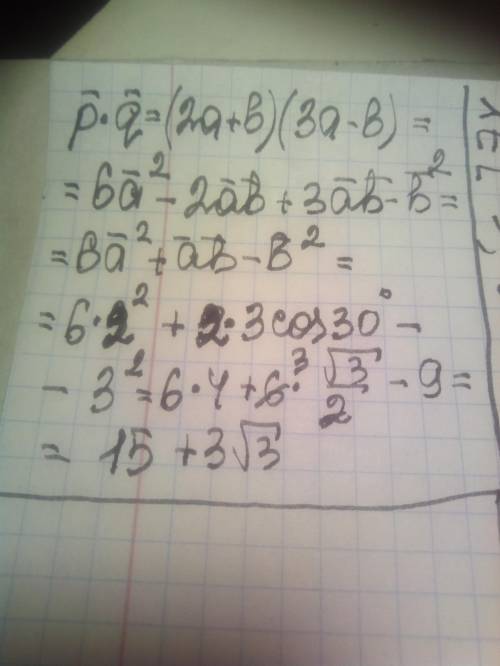 p̄·q̄=(2a+b)(3a-b)=
=6ā²-2āb̄+3āb̄-b̄²=
=6ā²+āb̄-b²=
=6·2²+2·3cos30°-
-3²=6·4+6·³√3/2-9=
=15+3√3